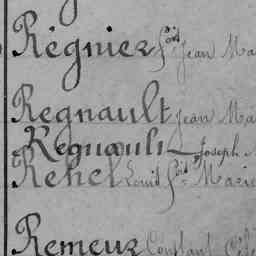 Régnier fois Jean Ma
Regnault Jean Ma
Regnault Joseph
Rehel Louis fois Marie
Remeur Constant